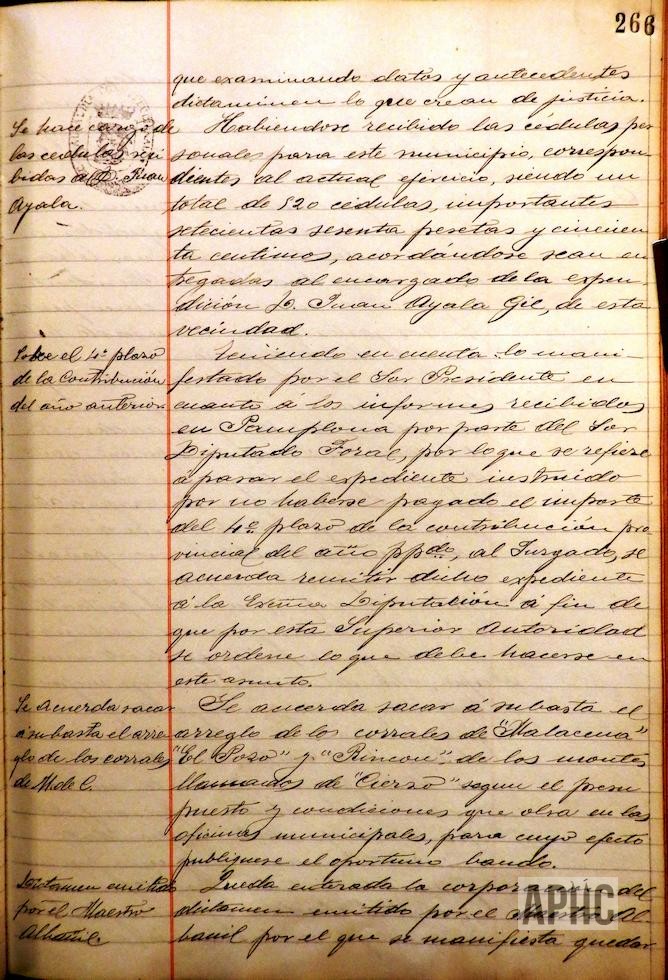 266
que examinando datos y antecedentes
dictaminen lo que crean de justicia.
Se hace cargo de
las cedulas reci
bidas a D. Juan
Ayala.
Habiendose recibido las cédulas per
sonales para este municipio, correspon
dientes al actual ejercicio, siendo un
total de 520 cédulas, importantes
setecientas sesenta pesetas y cincuen
ta centimos, acordándose sean en
tregadas al encargado de la expen
dición D. Juan Ayala Gil, de esta
vecindad.
Sobre el 4º plazo
de la Contribución
del año anterior
Teniendo en cuenta lo mani-
festado por el Sor Presidente en
cuanto á los informes recibidos
en Pamplona por parte del Sor
Diputado Foral, por lo que se refiere
a pasar el expediente instruido
por no haberse pagado el importe
del 4º plazo de la contribución pro
vincial del año ppdo, al Juzgado, se
acuerda remitir dicho expediente
á la Exema Diputación á fin de
que por esta Superior Autoridad
se ordene lo que debe hacerse en
este asunto.
Se acuerda sacar
á subasta el arre
glo de los corrales
de M. de C.
Se acuerda sacar á subasta el
arreglo de los corrales de "Malacena"
"El Pozo" y "Rincon" de los montes
llamados de "Cierzo" segun el presu
puesto y condiciones que obra en las
oficinas municipales, para cuyo efecto
publiquese el oportuno bando.
Dictamen emitido
por el Maestro
Albañil.
Queda enterada la corporación del
dictamen emitido por el Maestro Al-
bañil por el que se manifiesta quedar
APHC